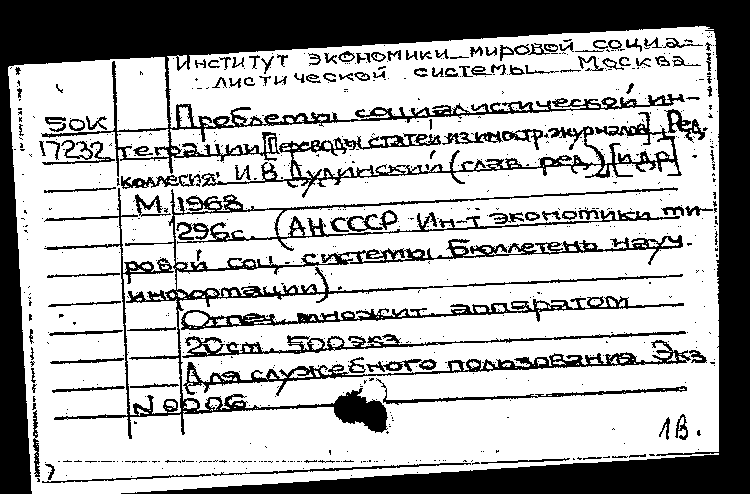 Институт экономики мировой социа-
листической системы. Москва
50К
17232
Проблемы социалистической ин-
теграции [Переводы статей из иностр. журналов]. Ред.
коллегия: И.В. Дудинский (глав. ред.), [и др.].
М. 1968.
296с. (АН СССР. Ин-т экономики ми-
ровой соц. системы. Бюллетень науч.
информации).
Отпеч. множит. аппаратом
20см. 500экз.
Для служебного пользования. Экз.
N 0006.
1В.